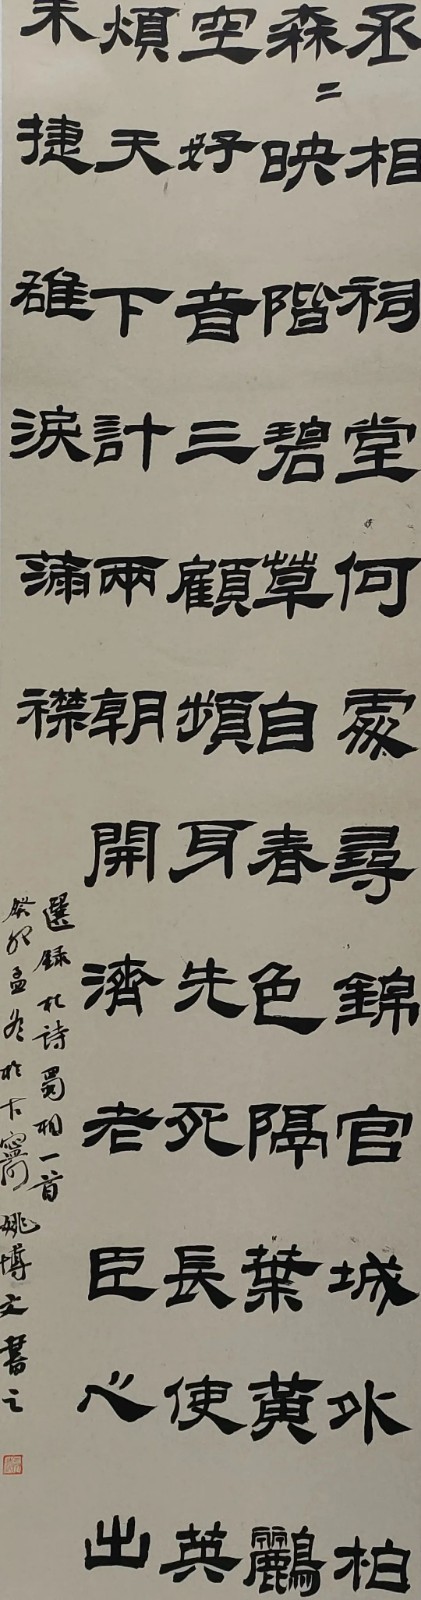 丞相祠堂何處尋錦官城外柏
森二映階碧草自春色隔葉黃鸝
空好音三顧頻身先死長使英
煩天下計兩朝開濟老臣心出
未捷雄淚滿襟
選錄杜詩蜀相一首
癸卯孟冬於古寧河姚博文書之